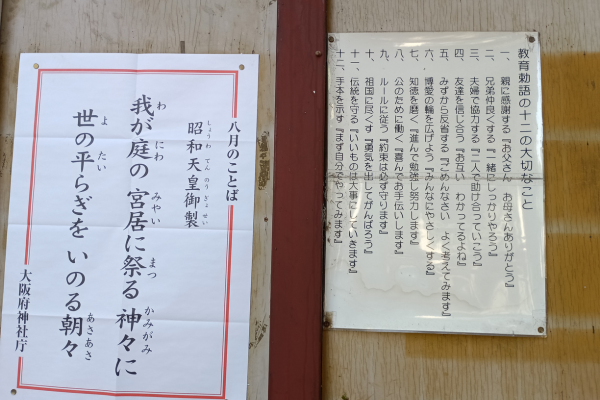 教育勅語の十二の大切なこと
一、親に感謝する『お父さん お母さんありがとう』
二、兄弟仲良くする『一緒にしっかりやろう』
三、夫婦で協力する『二人で助け合っていこう』
四、友達を信じ合う『お互い わかってるよね』
五、みずから反省する『ごめんなさい よく考えてみます』
六、博愛の輪を広げよう『みんなにやさしくする』
七、知徳を磨く『進んで勉強し努力します』
八、公のために働く『喜んでお手伝いします』
九、ルールに従う『約束は必ず守ります』
十、祖国に尽くす『勇気を出してがんばろう』
十一、伝統を守る『いいものは大事にしていきます』
十二、手本を示す『まず自分でやってみます』
八月のことば
しょうわ てんのう ぎょせい
昭和天皇御製
わ にわ みやい まつ かみがみ
我が庭の宮居に祭る神々に
よ たい あさあさ
世の平らぎをいのる朝々
大阪府神社庁